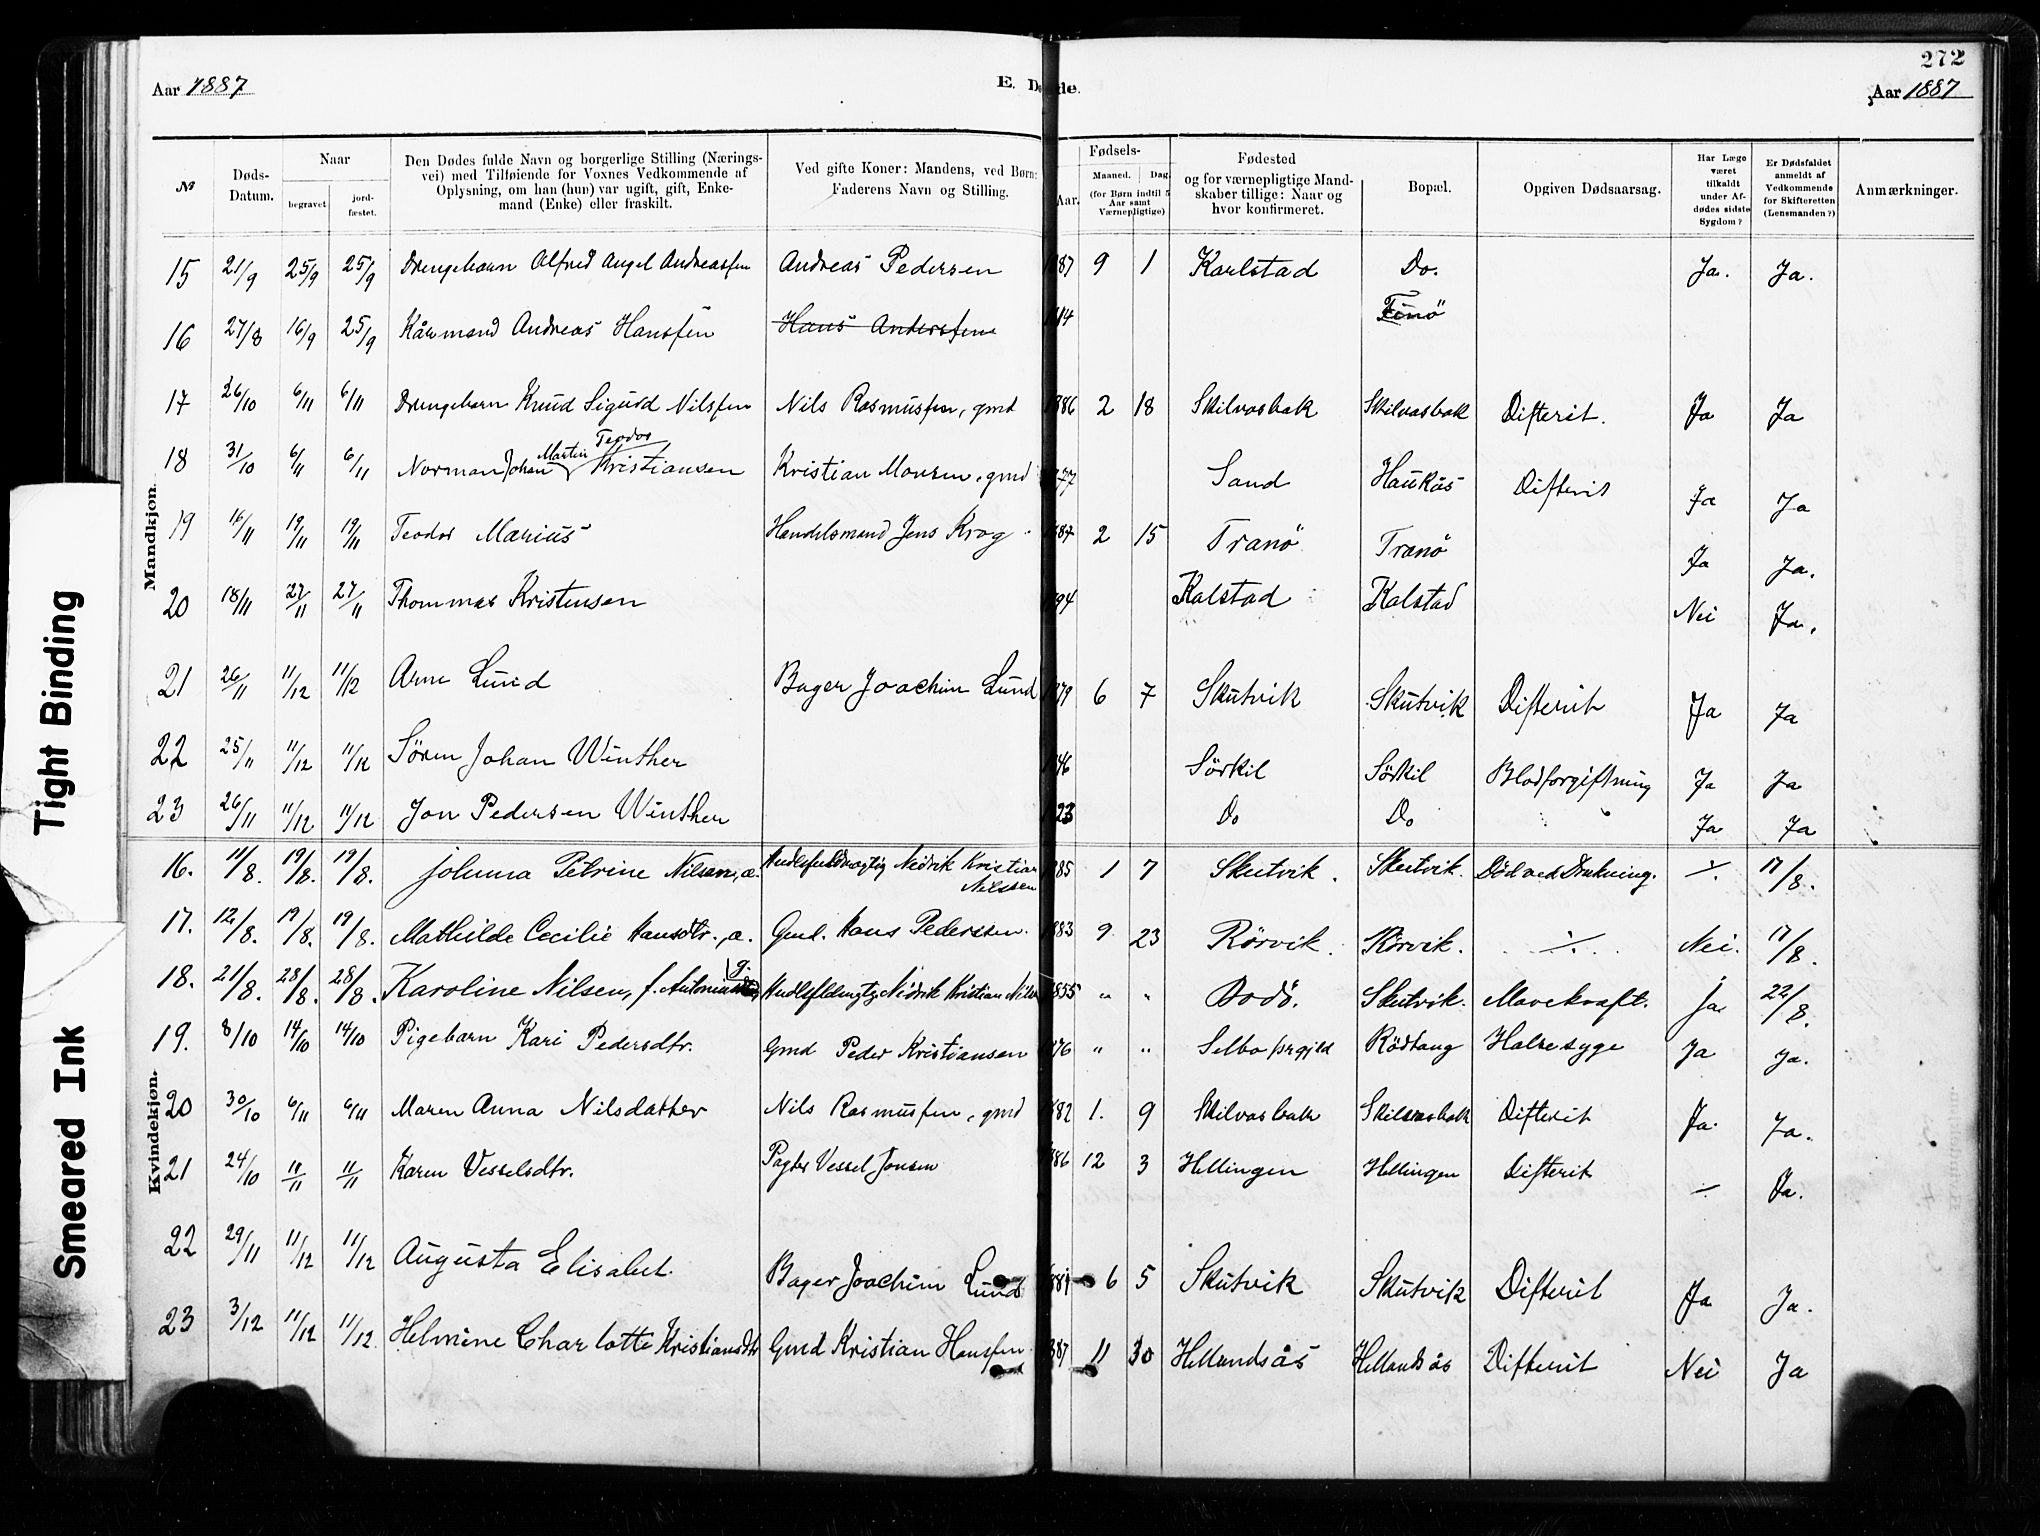 272
Aar 1887 E. Døde. Aar 1887
№ Døds-Datum. Naar begravet jordfæstet. Den Dødes fulde Navn og borgerlige Stilling (Næringsvei) med Tilføiende for Voxnes Vedkommende af Oplysning, om han (hun) var ugift, gift, Enkemand (Enke) eller fraskilt. Ved gifte Koner: Mandens, ved Børn: Faderens Navn og Stilling. Fødsels- Aar. Maaned. Dag. (for Børn indtil 5 Aar samt Værnepligtige) Fødested og for værnepligtige Mandskaber tillige: Naar og hvor konfirmeret. Bopæl. Opgiven Dødsaarsag. Har Læge været tilkaldt under Afdødes sidste Sygdom? Er Dødsfaldet anmeldt af Vedkommende for Skifteretten (Lensmanden?) Anmærkninger.
Mandkjøn.
15 21/9 25/9 25/9 Drengebarn Alfred Angel Andreassen Andreas Pedersen 87 9 1 Karlstad Do. Ja. Ja.
16 27/8 16/9 25/9 Kårmand Andreas Hanssen Hans Anderssen 14 Finö
17 26/10 6/11 6/11 Drengebarn Knud Sigurd Nilssen Nils Rasmussen, gmd 86 2 18 Skilvasbak Skilvasbak Difterit. Ja Ja
18 31/10 6/11 6/11 Norman Johan Martin Teodor Kristiansen Kristian Monsen, gmd 77 Sand Haukås Difterit Ja Ja
19 16/11 19/11 19/11 Teodor Marius Handelsmand Jens Krog 87 2 15 Tranö Tranö Ja Ja.
20 18/11 27/11 27/11 Thommas Kristensen 94 Kalstad Kalstad Nei Ja.
21 26/11 11/12 11/12 Arne Lund Bager Joachim Lund 79 6 7 Skutvik Skutvik Difterit Ja Ja
22 25/11 11/12 11/12 Sören Johan Winther 46 Sörkil Sörkil Blodforgiftning Ja Ja
23 26/11 11/12 11/12 Jon Pedersen Winther 23 Do Do Ja Ja
Kvindekjøn.
16. 11/8. 19/8. 19/8. Johnna Petrine Nilsen, æ. Nidrik Kristian Nilssen 85 1 7 Skutvik. Skutvik. Död ved Drukning. ·/· 17/8.
17. 12/8. 19/8. 19/8. Mathilde Cecilie Hansdtr., æ. Gmd. Hans Pederssen. 83 9 23 Rörvik. Rörvik. ·/· Nei. 17/8.
18. 21/8. 28/8. 28/8. Karoline Nilsen, f. g. Nidrik Kristian 55 " " Bodö. Skutvik. Mavekræft. Ja 22/8.
19. 8/10 14/10 14/10 Pigebarn Kari Pedersdtr. Gmd Peder Kristiansen 76 " " Selbo prgjld Rödtang Halsesyge Ja Ja.
20 30/10 6/11 6/11 Maren Anna Nilsdatter Nils Rasmussen, gmd 82 1. 9 Skilvasbak Skilvasbak Difterit Ja. Ja.
21 24/10 11/11 11/11 Karen Vesselsdtr. Pagter Vessel Jonsen 86 12 3 Hellingen Hellingen Difterit ·/· Ja.
22 29/11 11/12 11/12 Augusta Elisabet. Bager Joachim Lund 6 5 Skutvik Skutvik Difterit Ja Ja.
23 3/12 11/12 11/12 Helmine Charlotte Kristiansdtr Gmd Kristian Hanssen 87 11 30 Hellandsås Hellandsås Difterit Nei Ja
Tight Binding
Smeared Ink